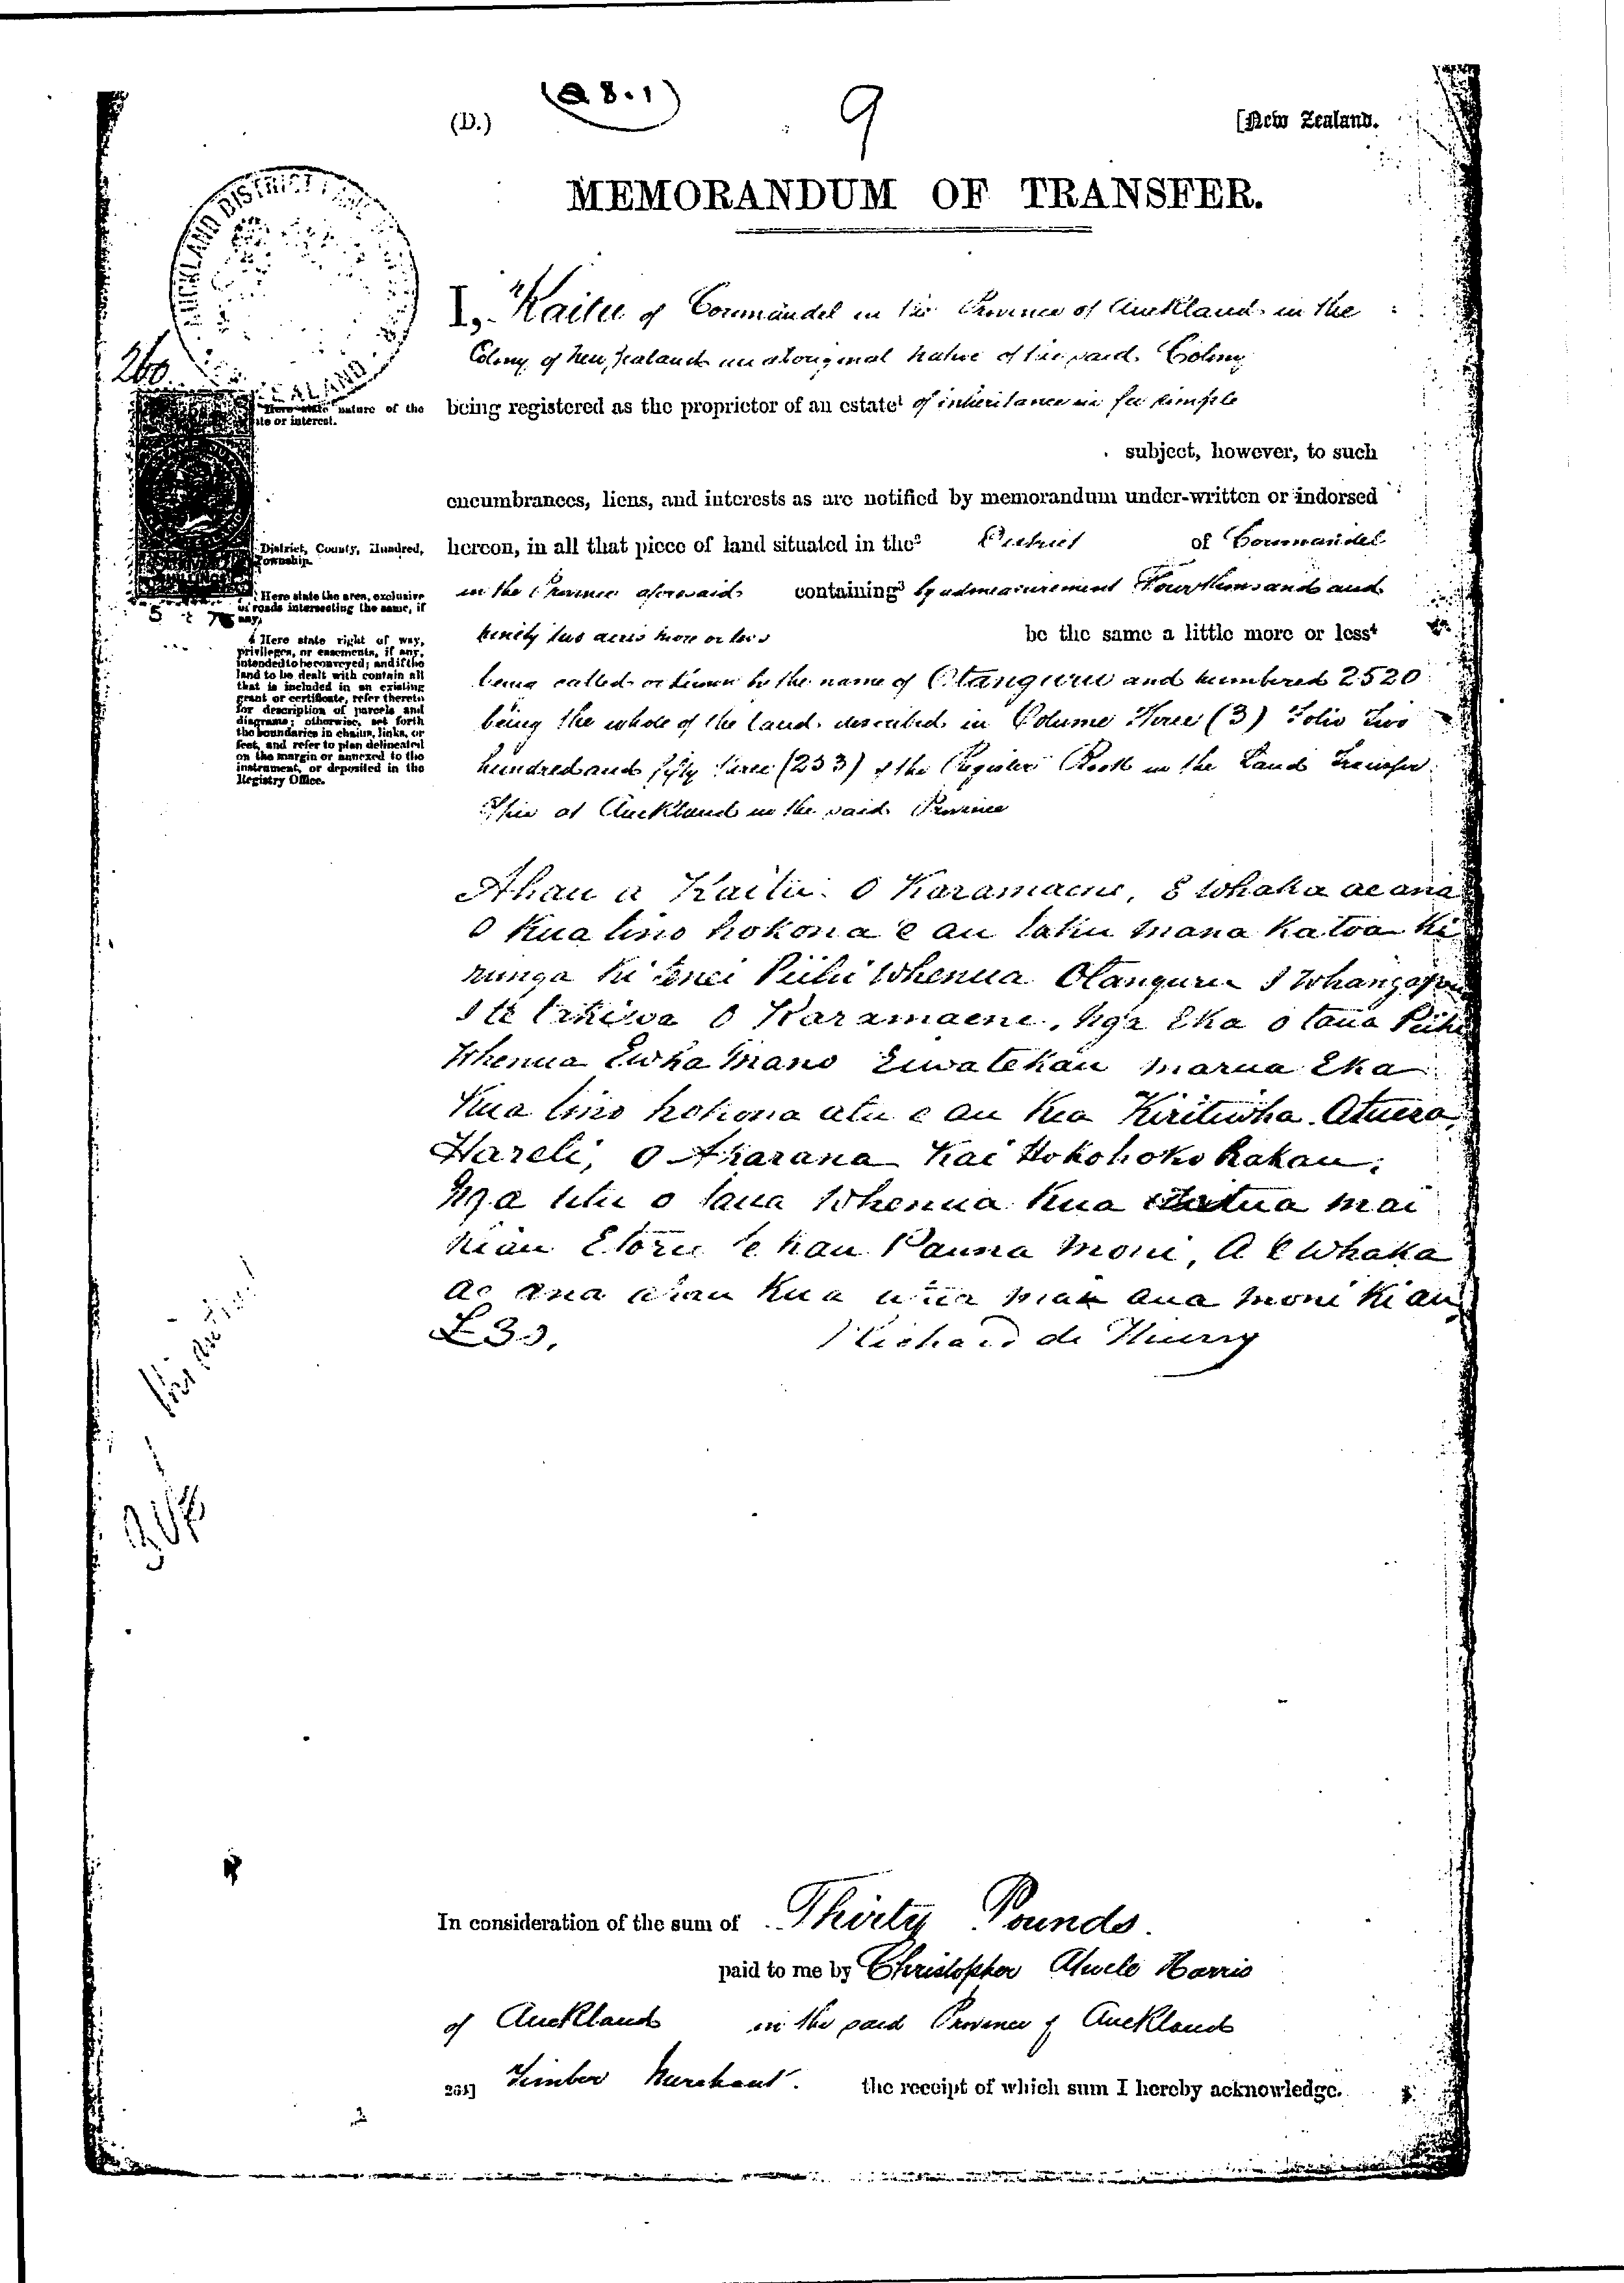 (Q 8.1)
9
(D.)
[New Zealand.
MEMORANDUM OF TRANSFER.
AUCKLAND DISTRICT LAND
ZEALAND
260
I, Kaitu of Coromandel in the Province of Auckland in the
Colony of New Zealand an aboriginal Native of the said Colony
Here state nature of the
or interest.
being registered as the proprietor of an estate¹ of inheritance in fee simple
subject, however, to such
encumbrances, liens, and interests as are notified by memorandum under-written or indorsed
District, County, Hundred,
Township.
hereon, in all that piece of land situated in the² District of Coromandel
Here state the area, exclusive
of roads intersecting the same, if
any.
in the Province aforesaid containing³ by admeasurement Four thousand and
ninety two acres more or less be the same a little more or less⁴
4 Here state right of way,
privileges, or easements, if any,
intended to be conveyed; and if the
land to be dealt with contain all
that is included in an existing
grant or certificate, refer thereto
for description of parcels and
diagrams; otherwise, set forth
the boundaries in chains, links, or
feet, and refer to plan delineated
on the margin or annexed to the
instrument, or deposited in the
Registry Office.
being called or known by the name of Otanguru and numbered 2520
being the whole of the land described in Volume Three (3) Folio Two
hundred and fifty three (253) of the Register Book in the Land Transfer
Office at Auckland in the said Province
Ahau a Kaitu. O Karamaene, E whaka ae ana
O Kua tino hokona e au taku mana katoa ki
runga ki tenei Piihi Whenua Otanguru I Whangapoua
I te takiwa O Karamaene, Nga Eka o taua Piihi
Whenua Ewha Mano Eiwa tekau marua Eka
Kua tino hokona atu e au kia Kiritiwha Atuera
Hareti, O Akarana Kai Hokohoko Rakau;
Nga utu o taua Whenua kua utua mai
kiau Etoru te kau Pauna Moni, A E Whaka
ae ana ahau kua utua mai aua moni ki au
£30. Richard de Thierry
In consideration of the sum of Thirty Pounds
paid to me by Christopher Atwele Harris
of Auckland in the said Province of Auckland
261] Timber Merchant. the receipt of which sum I hereby acknowledge.